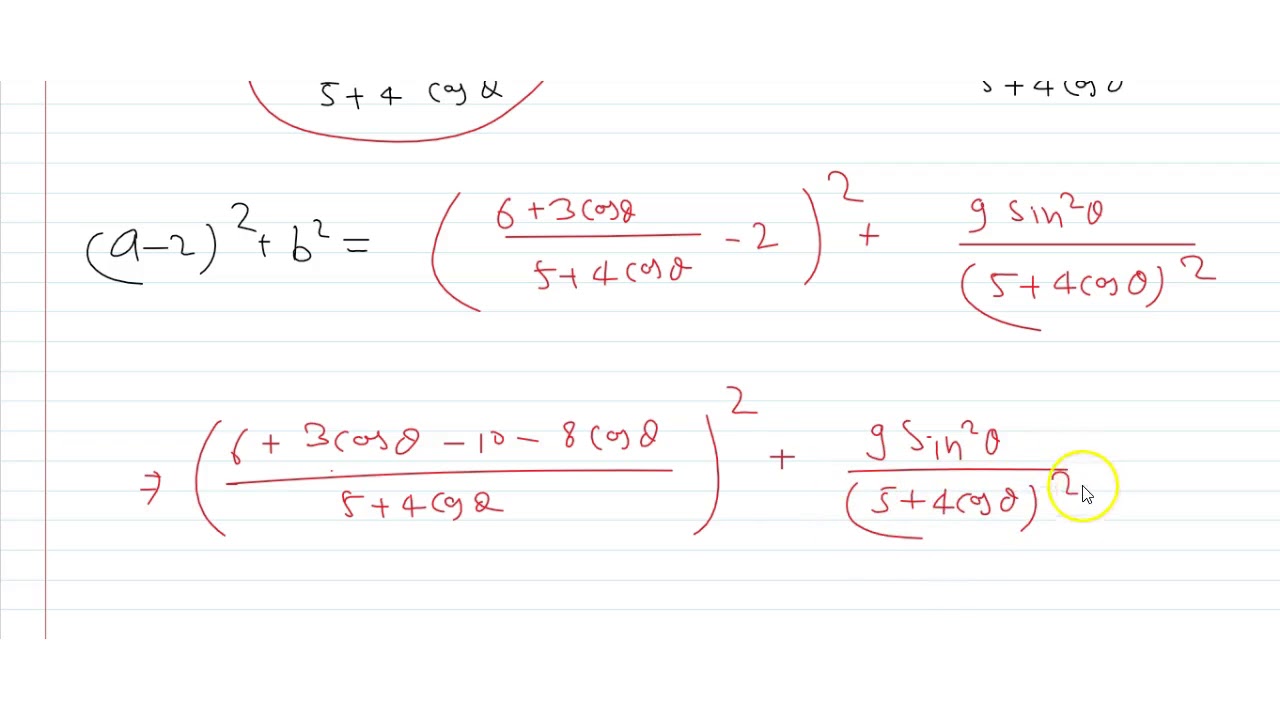 5 + 4 cos θ 5 + 4 cos θ
(a - 2)² + b² = ( (6 + 3 cos θ)/(5 + 4 cos θ) - 2 )² + 9 sin²θ/(5 + 4 cos θ)²
⇒ ( (6 + 3 cos θ - 10 - 8 cos θ)/(5 + 4 cos θ) )² + 9 sin²θ/(5 + 4 cos θ)²